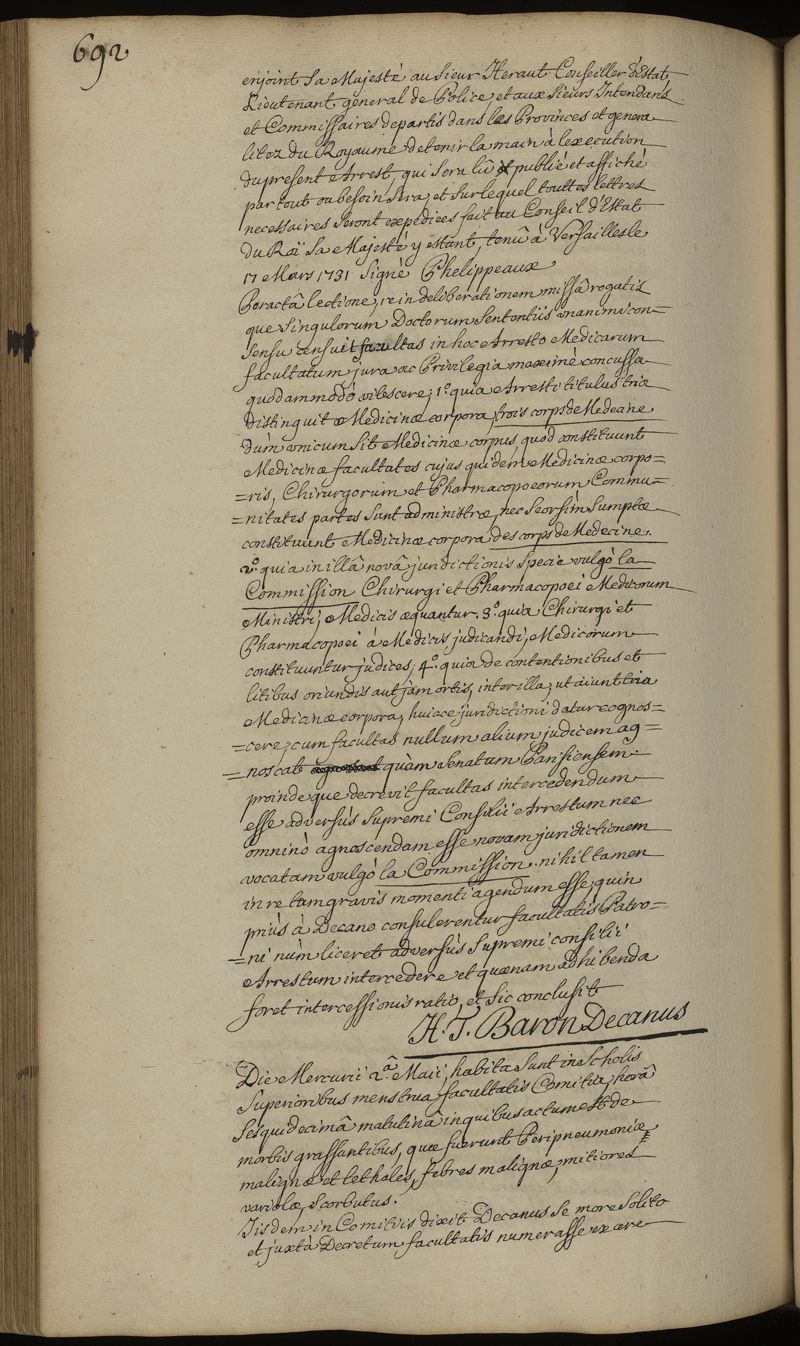 692
enjoint Sa Majesté au Sieur Heraut Conseiller d'Estat,
Lieutenant general de Police, et aux Sieurs Intendans
et Commissaires departis dans les Provinces et genera
litez du Royaume de tenir la main à lexecution
du present Arrest, qui sera lû et publié et affiché
par tout ou besoin sera, et sur lequel touttes lettres
necessaires seront expediees fait au Conseil d'Estat
du Roï Sa Majesté y estant, tenû à Versailles le
17 Mars 1731 Signé Phelippeaux
Peractâ lectione, re in deliberationem missâ rogatis
que singulorum Doctorum Sententiis unanimi con=
sensu censuit facultas in hoc Arresto Medicarum
facultatum jura ac Privilegia maximè concussa
quodammodò vilescere; 1.º quia Arresti titulus tria
distinguit Medicinæ corpora, trois corps de Medecine
dùm unicum sit Medicinæ corpus, quod constituunt
Medicinæ facultates cujus quidem Medicinæ corpo=
=ris, Chirurgorum et Pharmacopoeorum Commu=
=nitates partes sunt administræ, nec seorsìm sumptæ
constituunt Medicinæ corpora des corps de Medecine.
2.º quia in illâ novâ jurisdictionis specie vulgò la
Commission Chirurgi et Pharmacopoei Medicorum
Ministri, Medicis æquantur. 3.º quia Chirurgi et
Pharmacopoei à Medicis judicandi, Medicorum
constituuntur judices; 4.º quia de contentionibus et
litibus oriundis aut jam ortis, inter illa, ut aiunt tria
Medicinæ corpora, huicce juridictioni datur cognos=
=cere; cum facultas nullum alium judicem ag=
=noscat quàm Senatum Parisiensem.
proindeque decrevit facultas intercedendum
esse adversùs Supremi Consilii Arrestum nec
omninò agnoscendam esse novam juridictionem
vocatam vulgò la Commission. nihil tamen
in re tam gravis momenti agendum esse, quin
priùs à Decano consulerentur facultatis Patro=
=ni nùm liceret adversùs Supremi consilii
Arrestum intercedere et quænam adhibenda
foret intercessionis ratio, et sic conclusit
H. T. Baron Decanus
Die Mercurii 2.â Maii, habita sunt in Scholis
Superioribus menstrua facultatis Comitia, horâ
sesquidecimâ matutinâ in quibus actum est de
morbis grassantibus, quæ fuerunt Peripneumoniæ
malignæ et lethales, febres malignæ, mitiores
variolæ, scorbutus.
Iisdem in Comitiis dixit Decanus se more solito
et juxtà Decretum facultatis numerasse ex ære